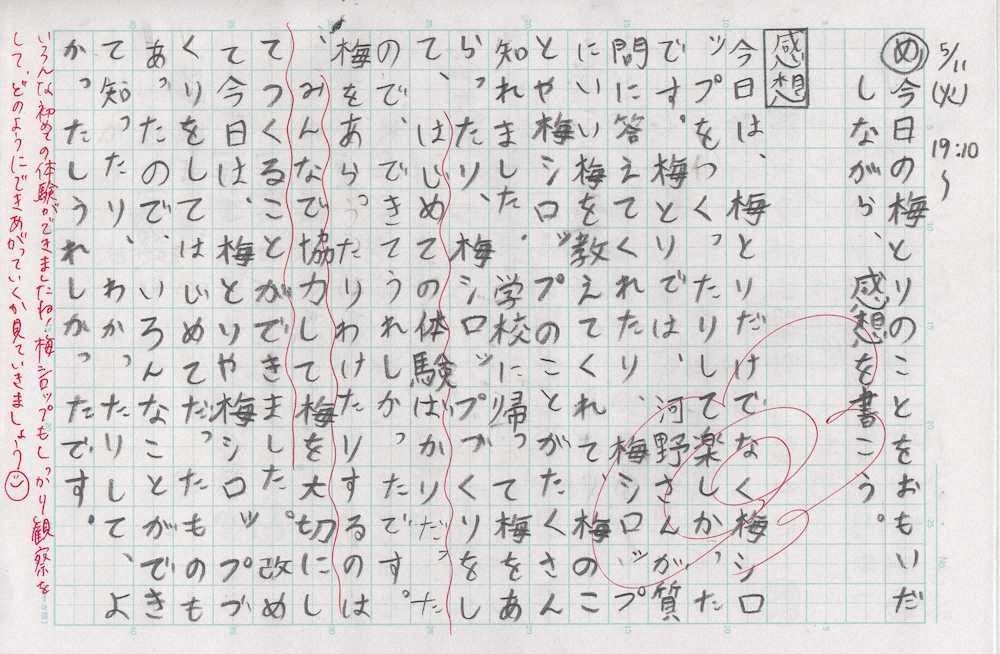 5/11(火) 19:10〜
め 今日の梅とりのことをおもいだ
しながら、感想を書こう。
感想
今日は、梅とりだけでなく梅シロ
ップをつくったりして楽しかった
です。梅とりでは、河野さんが質
問に答えてくれたり、梅シロップ
にいい梅を教えてくれて梅のこ
とや梅シロップのことがたくさん
知れました。学校に帰って梅をあ
らったり、梅シロップづくりをし
て、はじめての体験ばかりだった
ので、できてうれしかったです。
梅をあらったりわけたりするのは
、みんなで協力して梅を大切にし
てつくることができました。改め
て今日は、梅とりや梅シロップづ
くりをしてはじめてだったものも
あったので、いろんなことができ
て知ったり、わかったりして、よ
かったしうれしかったです。
いろんな初めての体験ができましたね!梅シロップもしっかり観察を
して、どのようにできあがっていくか見ていきましょう